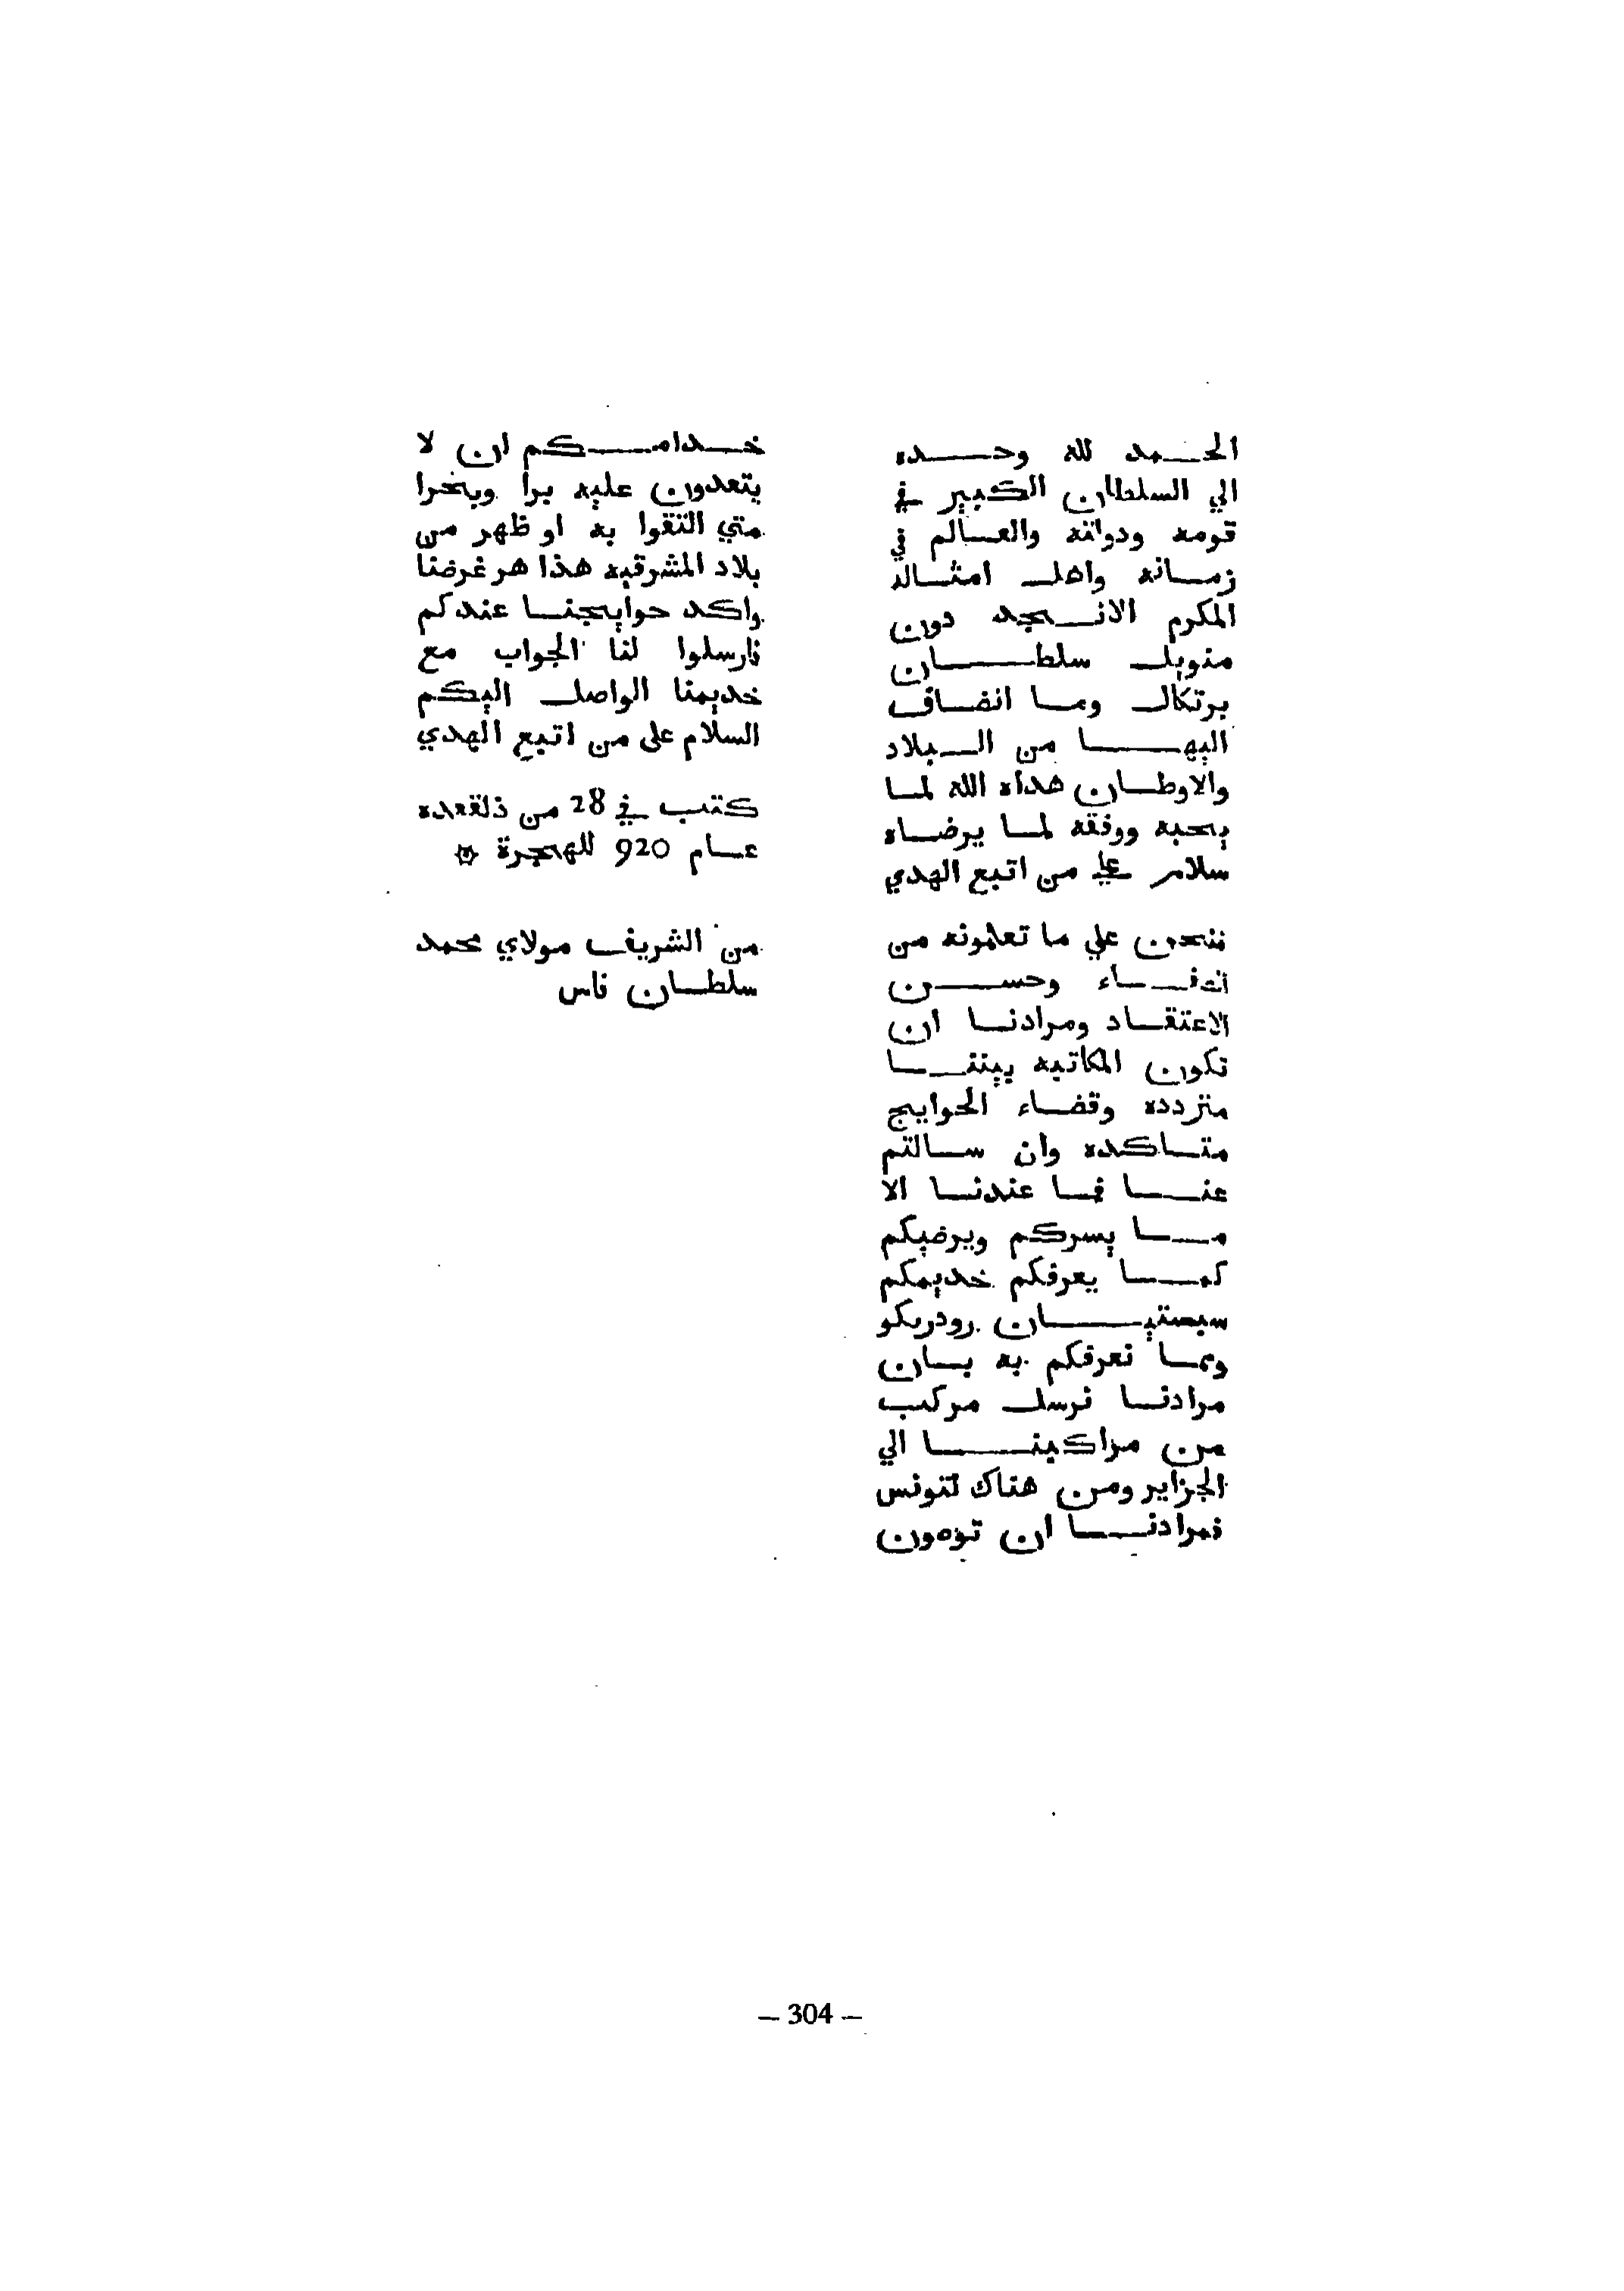 الحمد لله وحده
الي السلطان الكبير في
قومه ودولته والعالم في
زمانه واهل امثاله
المكرم الانجد دون
منويل سلطان
برتكال وما انضاف
اليها من البلاد
والاوطان هداه الله لما
يحبه ووفقه لما يرضاه
سلام علي من اتبع الهدي
فنحن علي ما تعلمونه من
وحسن
الاعتقاد ومرادنا ان
تكون المكاتبه بيننا
متردده وقضاء الحوايج
متاكده وان سالتم
عنا فما عندنا الا
ما يسركم ويرضيكم
كما يعرفكم خديمكم
سبستيان رودريكو
ومما نعرفكم به بان
مرادنا نرسل مركب
من مراكبنا الي
الجزاير ومن هناك لتونس
فمرادنا ان
خدامكم ان لا
يتعدون عليه برا وبحرا
متي التقوا به او ظهر من
بلاد المشرقيه هذا هر غرضنا
واكد حوايجنا عندكم
فارسلوا لنا الجواب مع
خديمنا الواصل اليكم
السلام على من اتبع الهدي
كتب في 28 من ذلقعده
عام 920 للهجرة ۞
من الشريف مولاي محمد
سلطان فاس
— 304 —